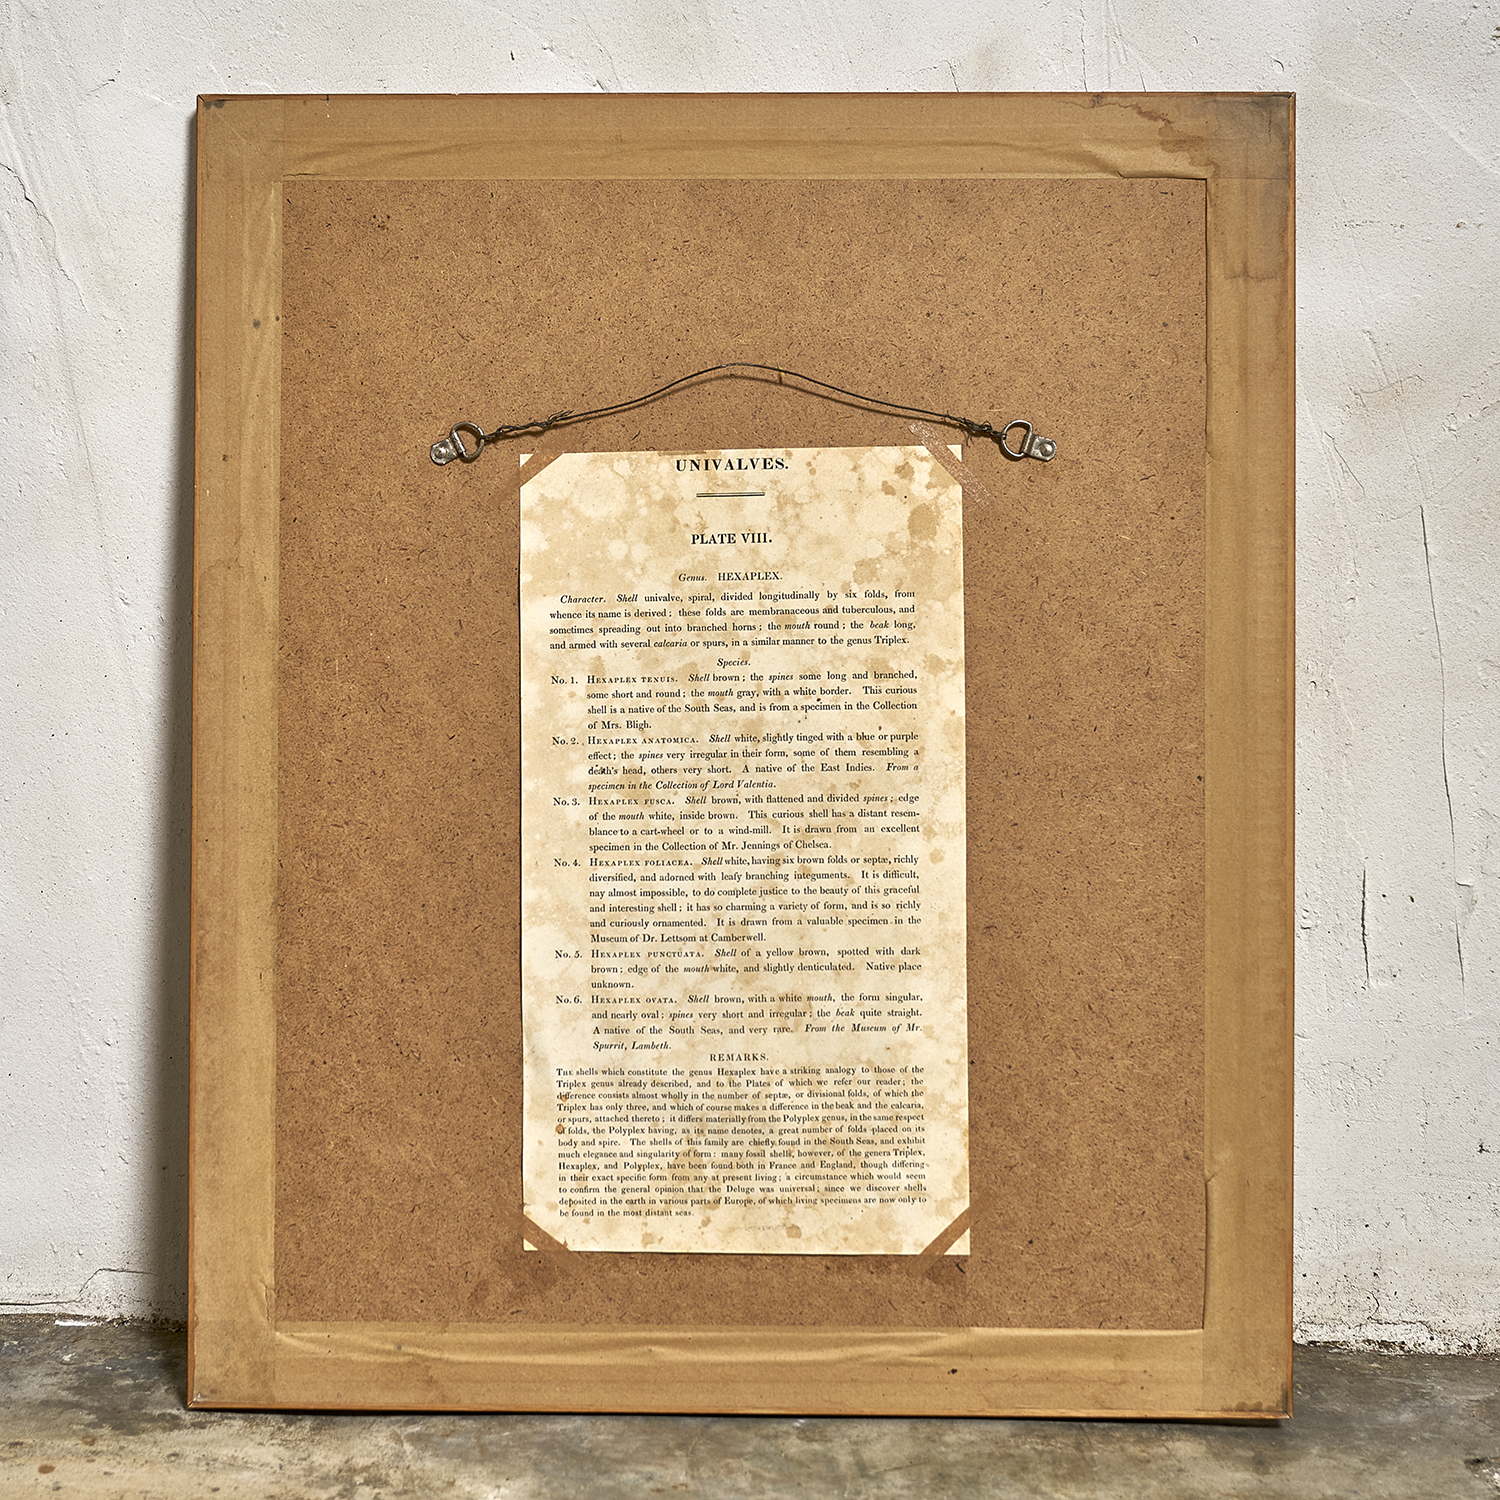 UNIVALVES.
PLATE VIII.
Genus. HEXAPLEX.
Character. Shell univalve, spiral, divided longitudinally by six folds, from
whence its name is derived; these folds are membranaceous and tuberculous, and
sometimes spreading out into branched horns; the mouth round; the beak long,
and armed with several calcaria or spurs, in a similar manner to the genus Triplex.
Species.
No. 1. HEXAPLEX TENUIS. Shell brown; the spines some long and branched,
some short and round; the mouth gray, with a white border. This curious
shell is a native of the South Seas, and is from a specimen in the Collection
of Mrs. Bligh.
No. 2. HEXAPLEX ANATOMICA. Shell white, slightly tinged with a blue or purple
effect; the spines very irregular in their form, some of them resembling a
death's head, others very short. A native of the East Indies. From a
specimen in the Collection of Lord Valentia.
No. 3. HEXAPLEX FUSCA. Shell brown, with flattened and divided spines; edge
of the mouth white, inside brown. This curious shell has a distant resem-
blance to a cart-wheel or to a wind-mill. It is drawn from an excellent
specimen in the Collection of Mr. Jennings of Chelsea.
No. 4. HEXAPLEX FOLIACEA. Shell white, having six brown folds or septæ, richly
diversified, and adorned with leafy branching integuments. It is difficult,
nay almost impossible, to do complete justice to the beauty of this graceful
and interesting shell; it has so charming a variety of form, and is so richly
and curiously ornamented. It is drawn from a valuable specimen in the
Museum of Dr. Lettsom at Camberwell.
No. 5. HEXAPLEX PUNCTUATA. Shell of a yellow brown, spotted with dark
brown; edge of the mouth white, and slightly denticulated. Native place
unknown.
No. 6. HEXAPLEX OVATA. Shell brown, with a white mouth, the form singular,
and nearly oval; spines very short and irregular; the beak quite straight.
A native of the South Seas, and very rare. From the Museum of Mr.
Spurrit, Lambeth.
REMARKS.
THE shells which constitute the genus Hexaplex have a striking analogy to those of the
Triplex genus already described, and to the Plates of which we refer our reader; the
difference consists almost wholly in the number of septæ, or divisional folds, of which the
Triplex has only three, and which of course makes a difference in the beak and the calcaria,
or spurs, attached thereto; it differs materially from the Polyplex genus, in the same respect
of folds, the Polyplex having, as its name denotes, a great number of folds placed on its
body and spire. The shells of this family are chiefly found in the South Seas, and exhibit
much elegance and singularity of form: many fossil shells, however, of the genera Triplex,
Hexaplex, and Polyplex, have been found both in France and England, though differing
in their exact specific form from any at present living; a circumstance which would seem
to confirm the general opinion that the Deluge was universal; since we discover shells
deposited in the earth in various parts of Europe, of which living specimens are now only to
be found in the most distant seas.